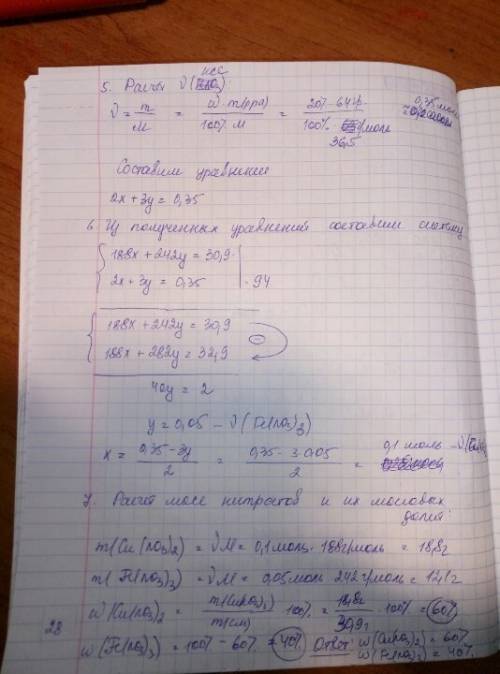 5. Расчет ν(HCl)
ν = m/M = w · m(р-ра)/100% · M = 20% · 64г/100% · 36,5 г/моль ≈ 0,35 моль
Составим уравнение
2x + 3y = 0,35
6. Из полученных уравнений составим систему
188x + 242y = 30,9
2x + 3y = 0,35 | · 94
188x + 242y = 30,9
188x + 282y = 32,9
40y = 2
y = 0,05 – ν(Fe(NO3)3)
x = 0,35 - 3y/2 = 0,35 - 3·0,05/2 = 0,1 моль
7. Расчет масс нитратов и их массовых
долей:
m(Cu(NO3)2) = νM = 0,1 моль · 188г/моль = 18,8г
m(Fe(NO3)3) = νM = 0,05 моль · 242 г/моль = 12,1г
w(Cu(NO3)2) = m(Cu(NO3)2)/m(см) · 100% = 18,8г/30,9г · 100% = 60%
w(Fe(NO3)3) = 100% - 60% = 40% Ответ: w(Cu(NO3)2) = 60%
w(Fe(NO3)3) = 40%
28